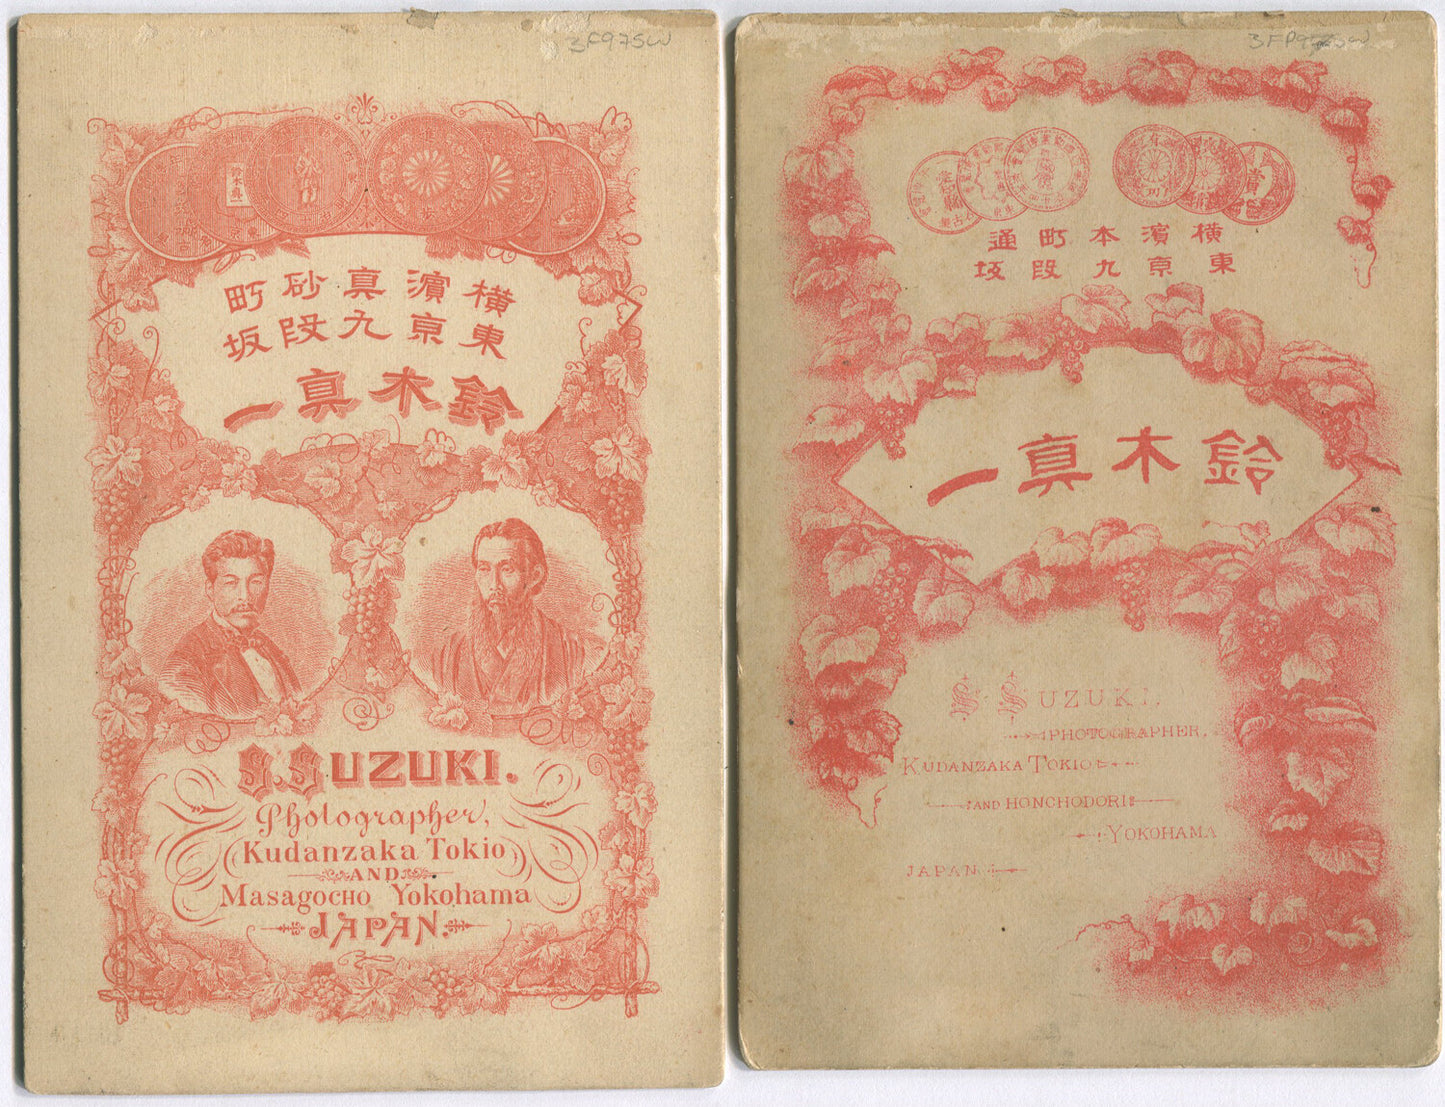 3F975W
横濱真砂町
東京九段坂
鈴木真一
S. SUZUKI.
Photographer,
Kudanzaka Tokio
AND
MASAGOCHO YOKOHAMA
JAPAN.
横濱本町通
東京九段坂
鈴木真一
S. SUZUKI.
PHOTOGRAPHER.
KUDANZAKA TOKIO
AND HONCHODORI
YOKOHAMA
JAPAN